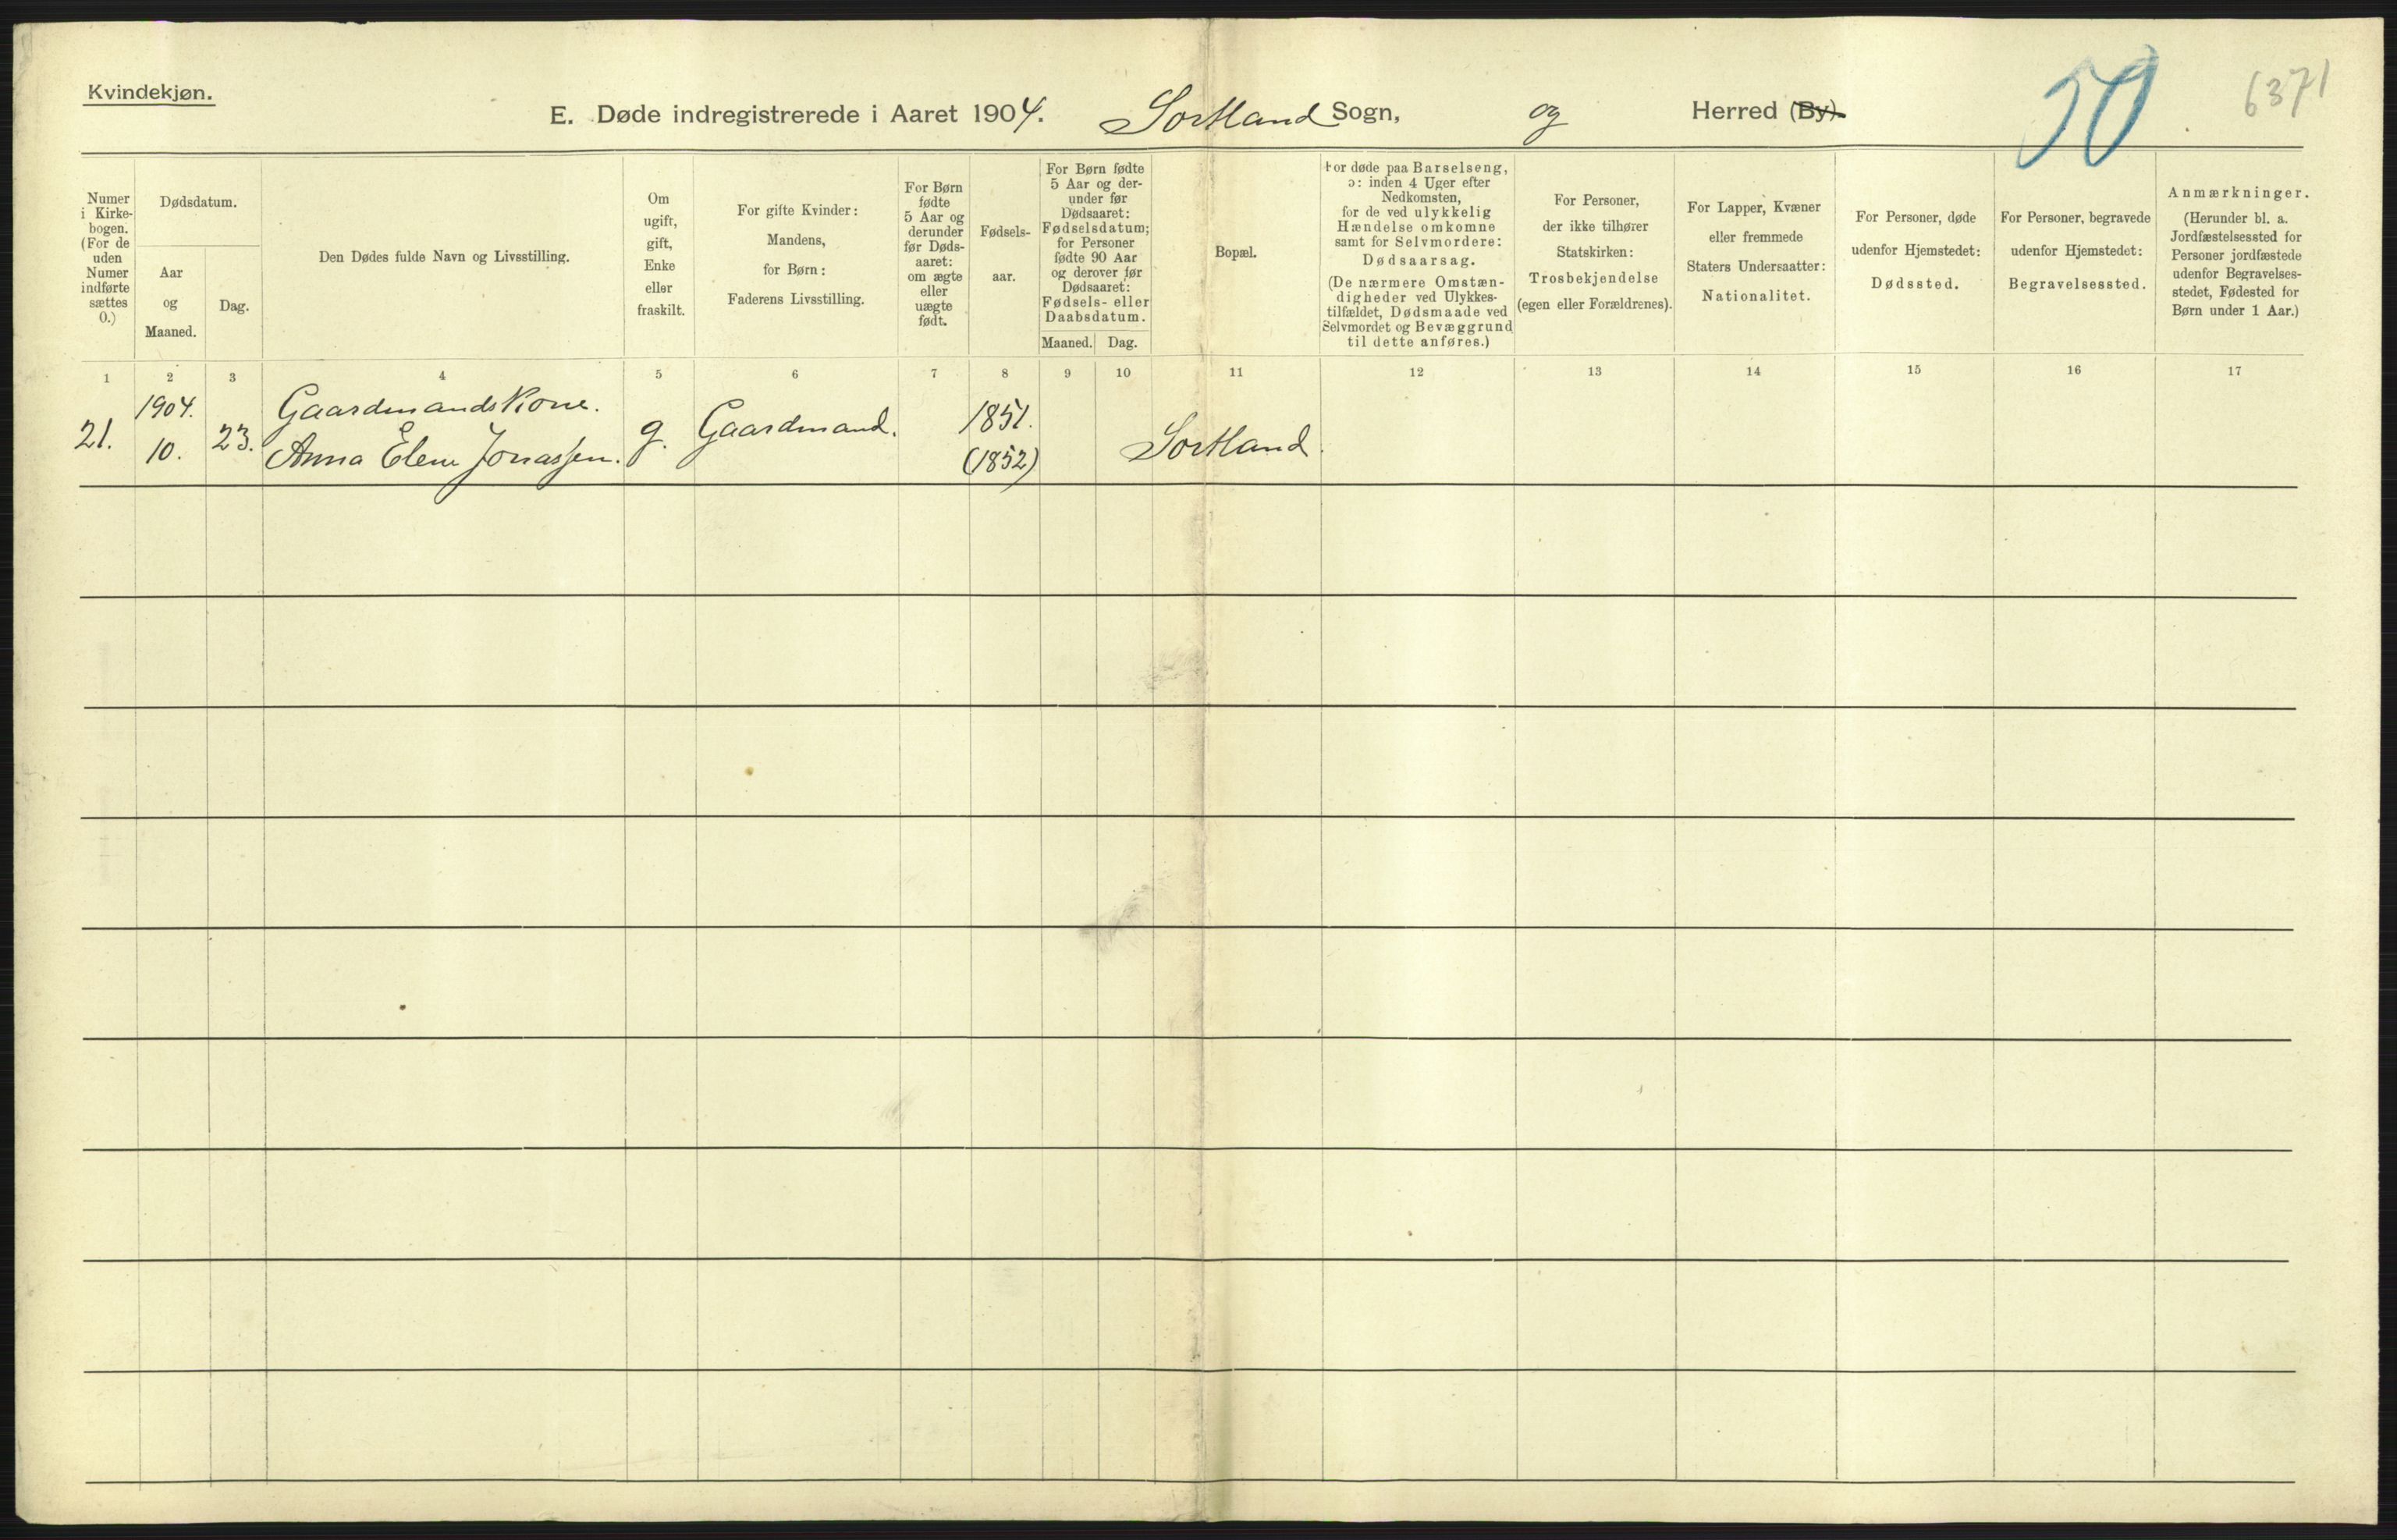 Kvindekjøn.
E. Døde indregistrerede i Aaret 1904. Sortland Sogn, og Herred (By).
50
6371
Numer i Kirkebogen. (For de uden Numer indførte sættes 0.)
Dødsdatum.
Aar og Maaned.
Dag.
Den Dødes fulde Navn og Livsstilling.
Om ugift, gift, Enke eller fraskilt.
For gifte Kvinder: Mandens, for Børn: Faderens Livsstilling.
For Børn fødte 5 Aar og derunder før Dødsaaret: om ægte eller uægte født.
Fødselsaar.
For Børn fødte 5 Aar og derunder før Dødsaaret: Fødselsdatum; for Personer fødte 90 Aar og derover før Dødsaaret: Fødsels- eller Daabsdatum.
Maaned.
Dag.
Bopæl.
For døde paa Barselseng, ɔ: inden 4 Uger efter Nedkomsten, for de ved ulykkelig Hændelse omkomne samt for Selvmordere: Dødsaarsag. (De nærmere Omstændigheder ved Ulykkestilfældet, Dødsmaade ved Selvmordet og Bevæggrund til dette anføres.)
For Personer, der ikke tilhører Statskirken: Trosbekjendelse (egen eller Forældrenes).
For Lapper, Kvæner eller fremmede Staters Undersaatter: Nationalitet.
For Personer, døde udenfor Hjemstedet: Dødssted.
For Personer, begravede udenfor Hjemstedet: Begravelsessted.
Anmærkninger. (Herunder bl. a. Jordfæstelsessted for Personer jordfæstede udenfor Begravelsesstedet, Fødested for Børn under 1 Aar.)
1 2 3 4 5 6 7 8 9 10 11 12 13 14 15 16 17
1904. Gaardmands Kone. 1851.
21. 10. 23. Anna Elene Jonassen. g. Gaardmand. (1852) Sortland.